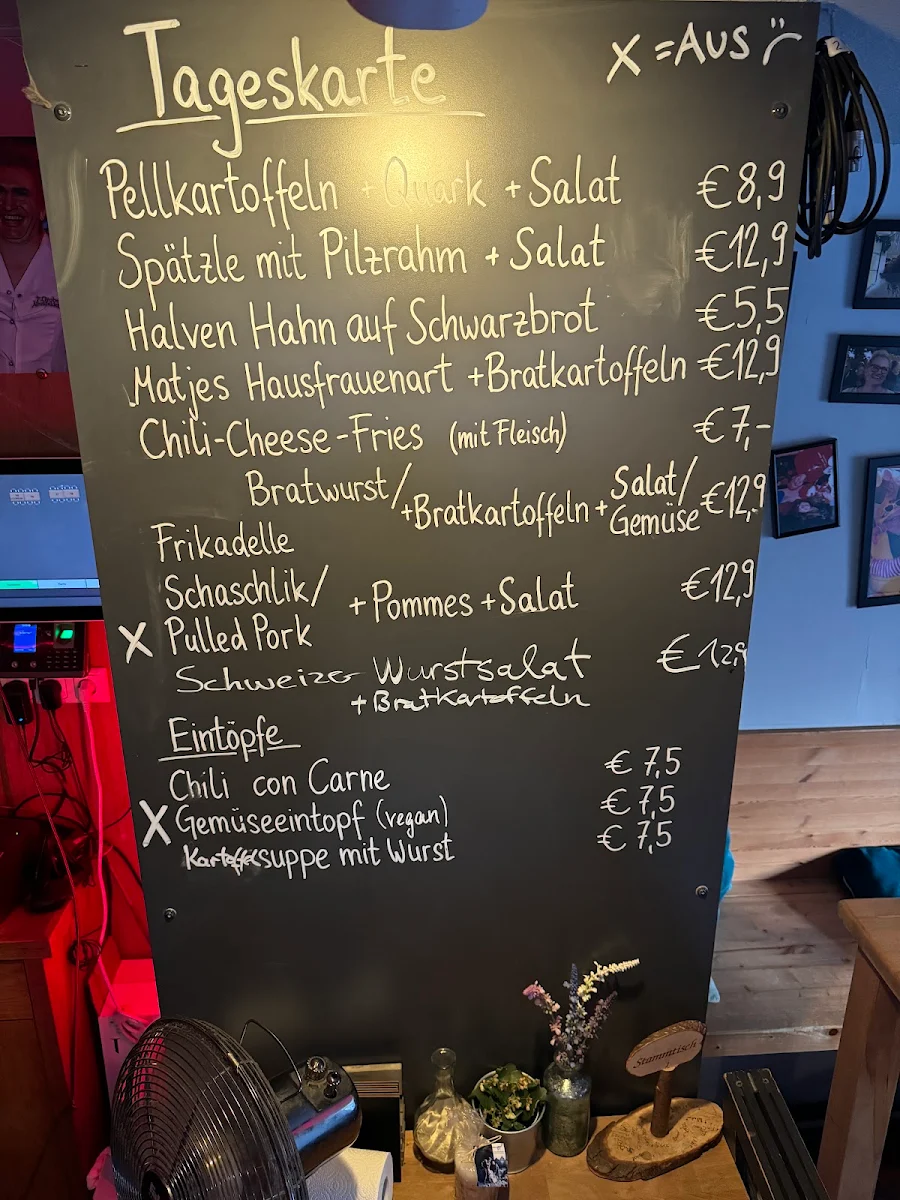 Tageskarte
X = Aus
Pellkartoffeln + Quark + Salat €8,9
Spätzle mit Pilzrahm + Salat €12,9
Halven Hahn auf Schwarzbrot €5,5
Matjes Hausfrauenart + Bratkartoffeln €12,9
Chili-Cheese-Fries (mit Fleisch) €7,-
Bratwurst/
Frikadelle
+ Bratkartoffeln + Salat/
Gemüse €12,9
Schaschlik/
X Pulled Pork
+ Pommes + Salat €12,9
Schweizer Wurstsalat €12,9
+ Bratkartoffeln
Eintöpfe
Chili con Carne € 7,5
X Gemüseeintopf (vegan) € 7,5
Kartoffelsuppe mit Wurst € 7,5
Stammtisch